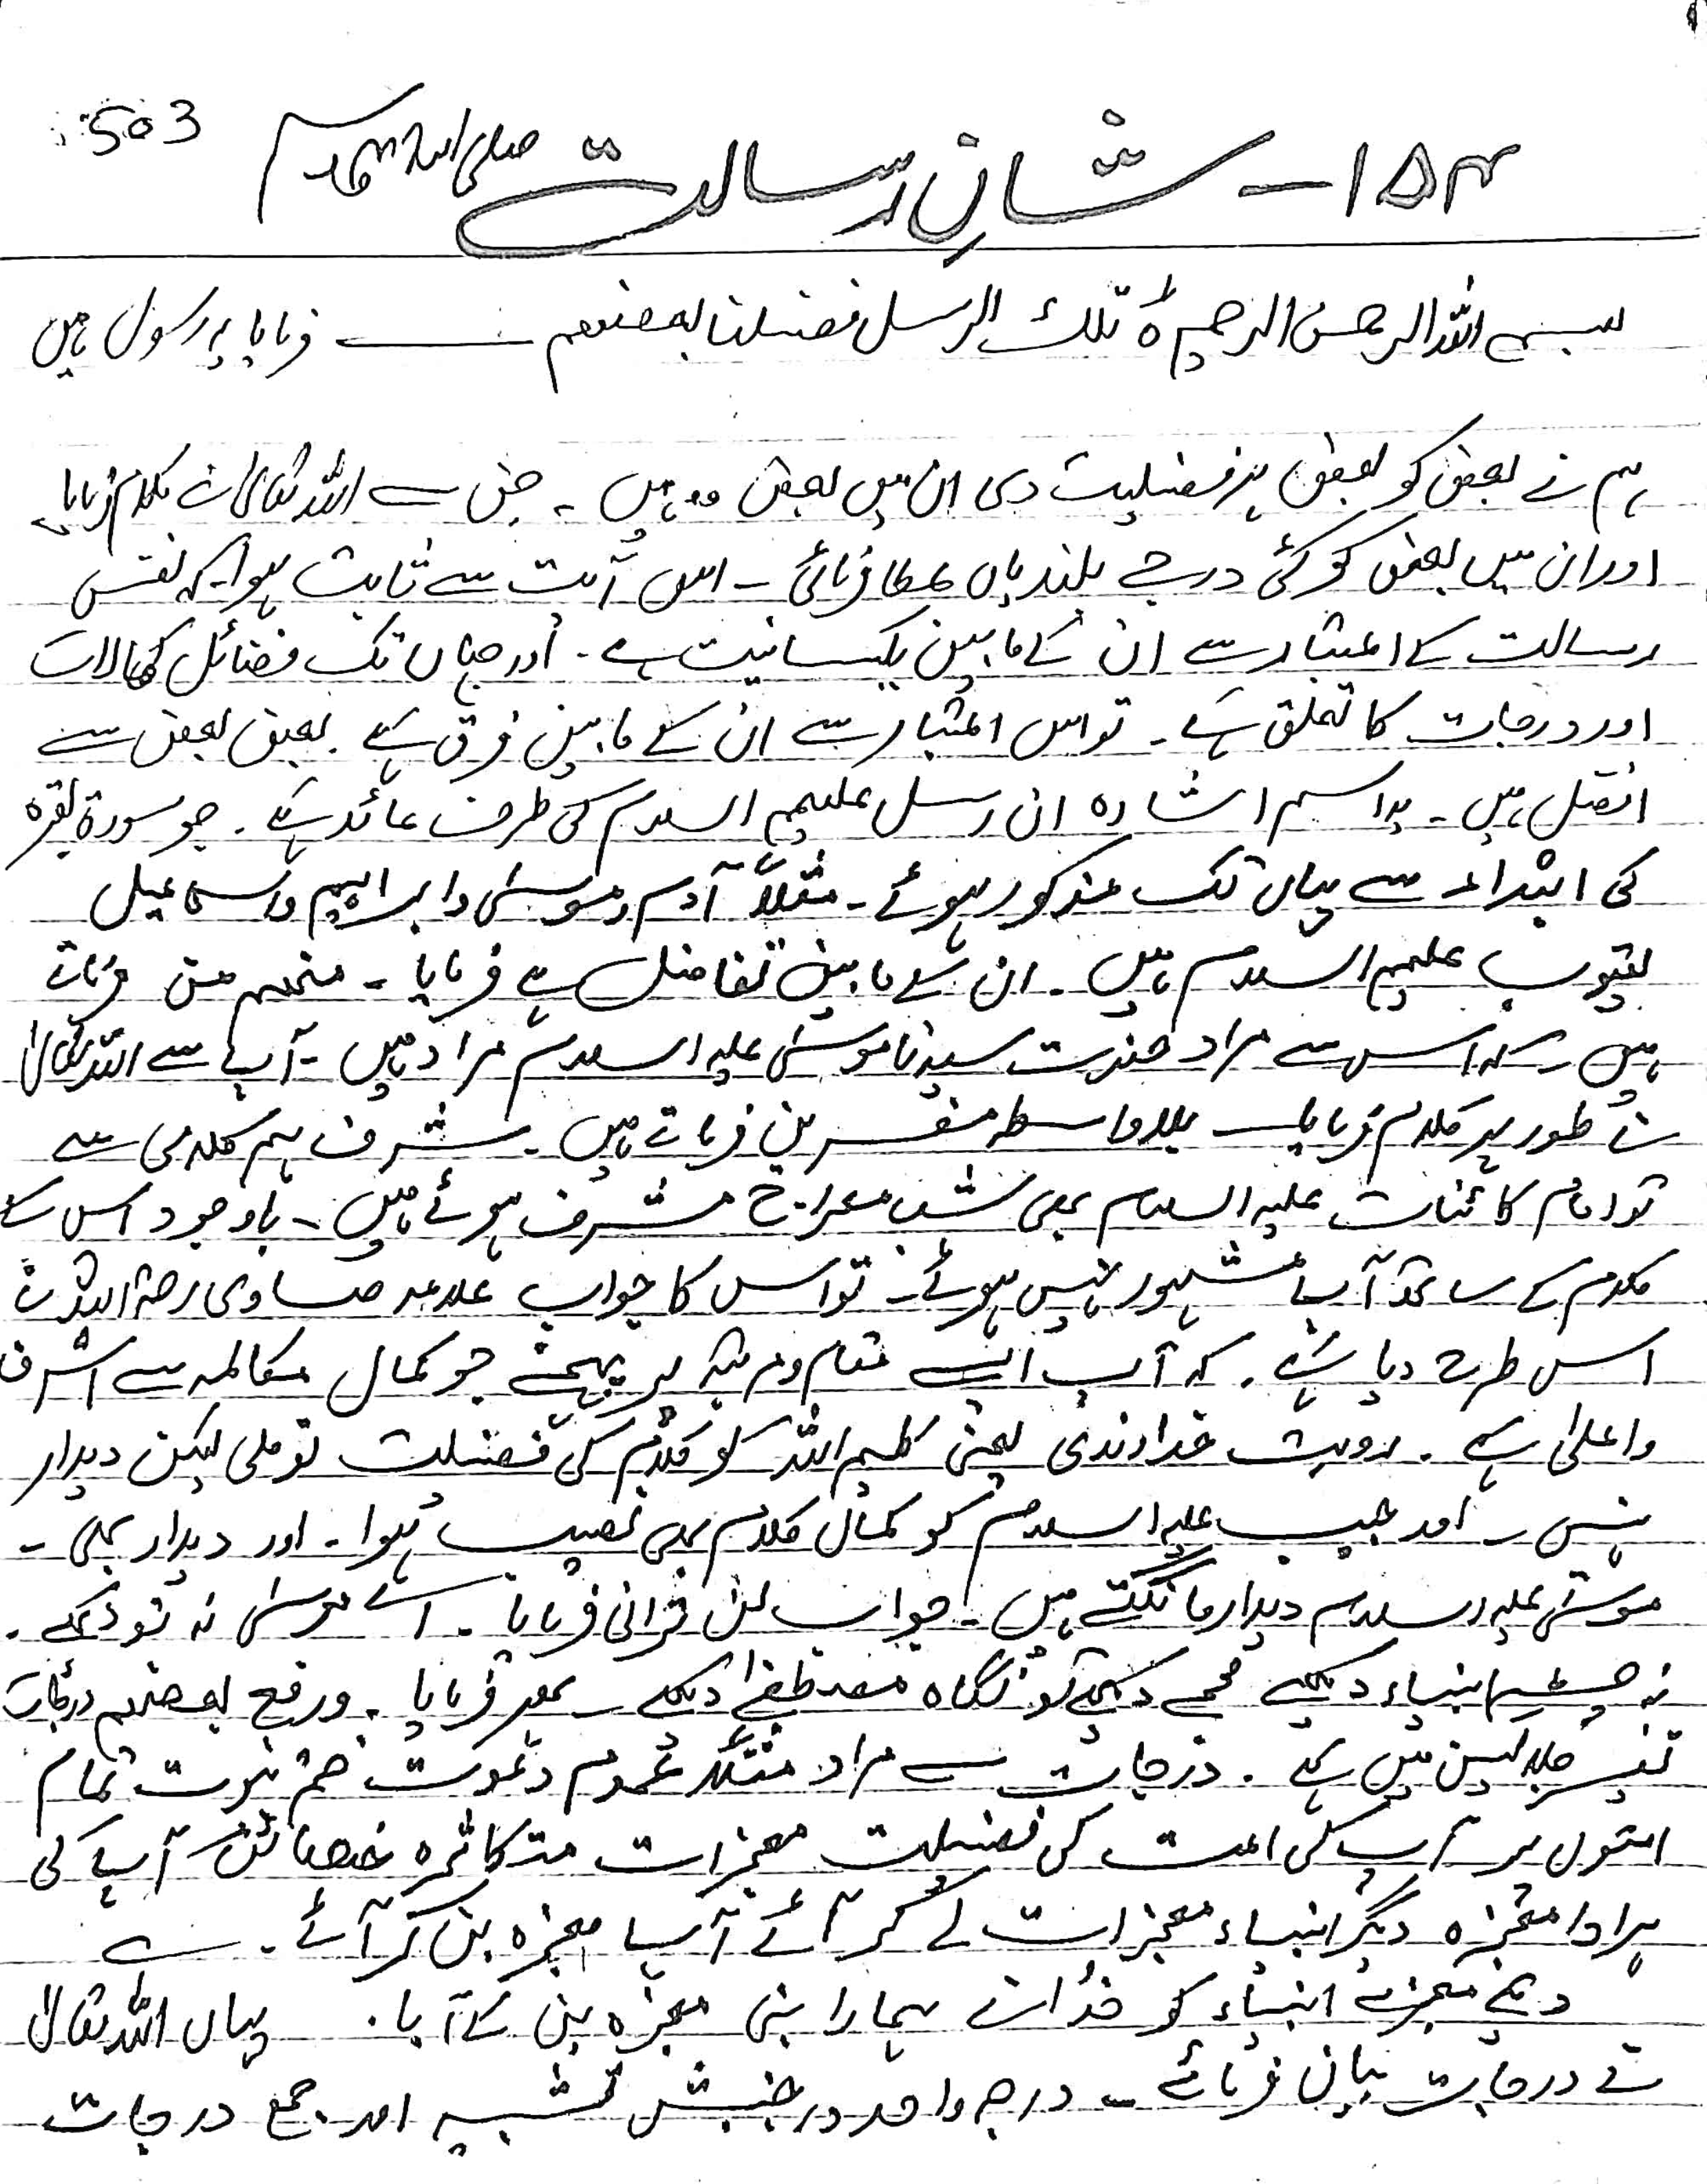 503
۱۵۴ - شانِ رسالت صلی اللہ علیہ وسلم
بسم اللہ الرحمن الرحیم ہ تلک الرسل فضلنا بعضھم ــــ فرمایا یہ رسول ہیں
ہم نے بعض کو بعض پر فضیلت دی ان میں بعض وہ ہیں ۔ جن سے اللہ تعالیٰ نے کلام فرمایا
اور ان میں بعض کو کئی درجے بلندیاں عطا فرمائی ۔ اس آیت سے ثابت ہوا ۔ کہ نفس
رسالت کے اعتبار سے ان کے مابین یکسانیت ہے ۔ اور جہاں تک فضائل کمالات
اور درجات کا تعلق ہے ۔ تو اس اعتبار سے ان کے مابین فرق ہے ۔ بعض بعض سے
افضل ہیں ۔ یہ اسم اشارہ ان رسل علیہم السلام کی طرف عائد ہے ۔ جو سورۃ بقرہ
کی ابتداء سے یہاں تک مذکور ہوئے ۔ مثلاً آدم وموسیٰ وابراہیم واسماعیل
یعقوب علیہم السلام ہیں ۔ ان کے مابین تفاضل ہے فرمایا ۔ منھم من فرماتے
ہیں کہ اس سے مراد حضرت سیدنا موسیٰ علیہ السلام مراد ہیں ۔ آپ سے اللہ تعالیٰ
نے طور پر کلام فرمایا ۔ بلاواسطہ مفسرین فرماتے ہیں ۔ شرف ہم کلامی سے
تو امام کائنات علیہ السلام بھی شب معراج مشرف ہوئے ہیں ۔ باوجود اس کے
کلام کے ساتھ آپ مشہور نہیں ہوئے ۔ تو اس کا جواب علامہ صاوی رحمۃ اللہ نے
اس طرح دیا ہے ۔ کہ آپ ایسے مقام ومرتبہ پر پہنچے جو کمال مکالمہ سے اشرف
واعلیٰ ہے ۔ رویت خداوندی یعنی کلیم اللہ کو کلام کی فضیلت تو ملی لیکن دیدار
نہیں ۔ اور حبیب علیہ السلام کو کمال کلام بھی نصیب ہوا ۔ اور دیدار بھی ۔
موسیٰ علیہ السلام دیدار مانگتے ہیں ۔ جواب لن ترانی فرمایا ۔ اے موسیٰ نہ تو دیکھے ۔
نہ چشم انبیاء دیکھے مجھے دیکھے تو نگاہ مصطفیٰ دیکھے ۔ پھر فرمایا ۔ ورفع بعضھم درجات
تفسیر جلالین میں ہے ۔ درجات سے مراد مثلاً عموم دعوت ختم نبوت تمام
امتوں پر آپ کی امت کی فضیلت معجزات متکاثرہ خصائص آپ کی
ہر ادا معجزہ دیگر انبیاء معجزات لے کر آئے آپ معجزہ بن کر آئے ۔ ؎
دیئے معجزے انبیاء کو خدا نے ہمارا نبی معجزہ بن کے آیا ۔ یہاں اللہ تعالیٰ
نے درجات بیان فرمائے ۔ درجہ واحد درجتین تثنیہ اور جمع درجات